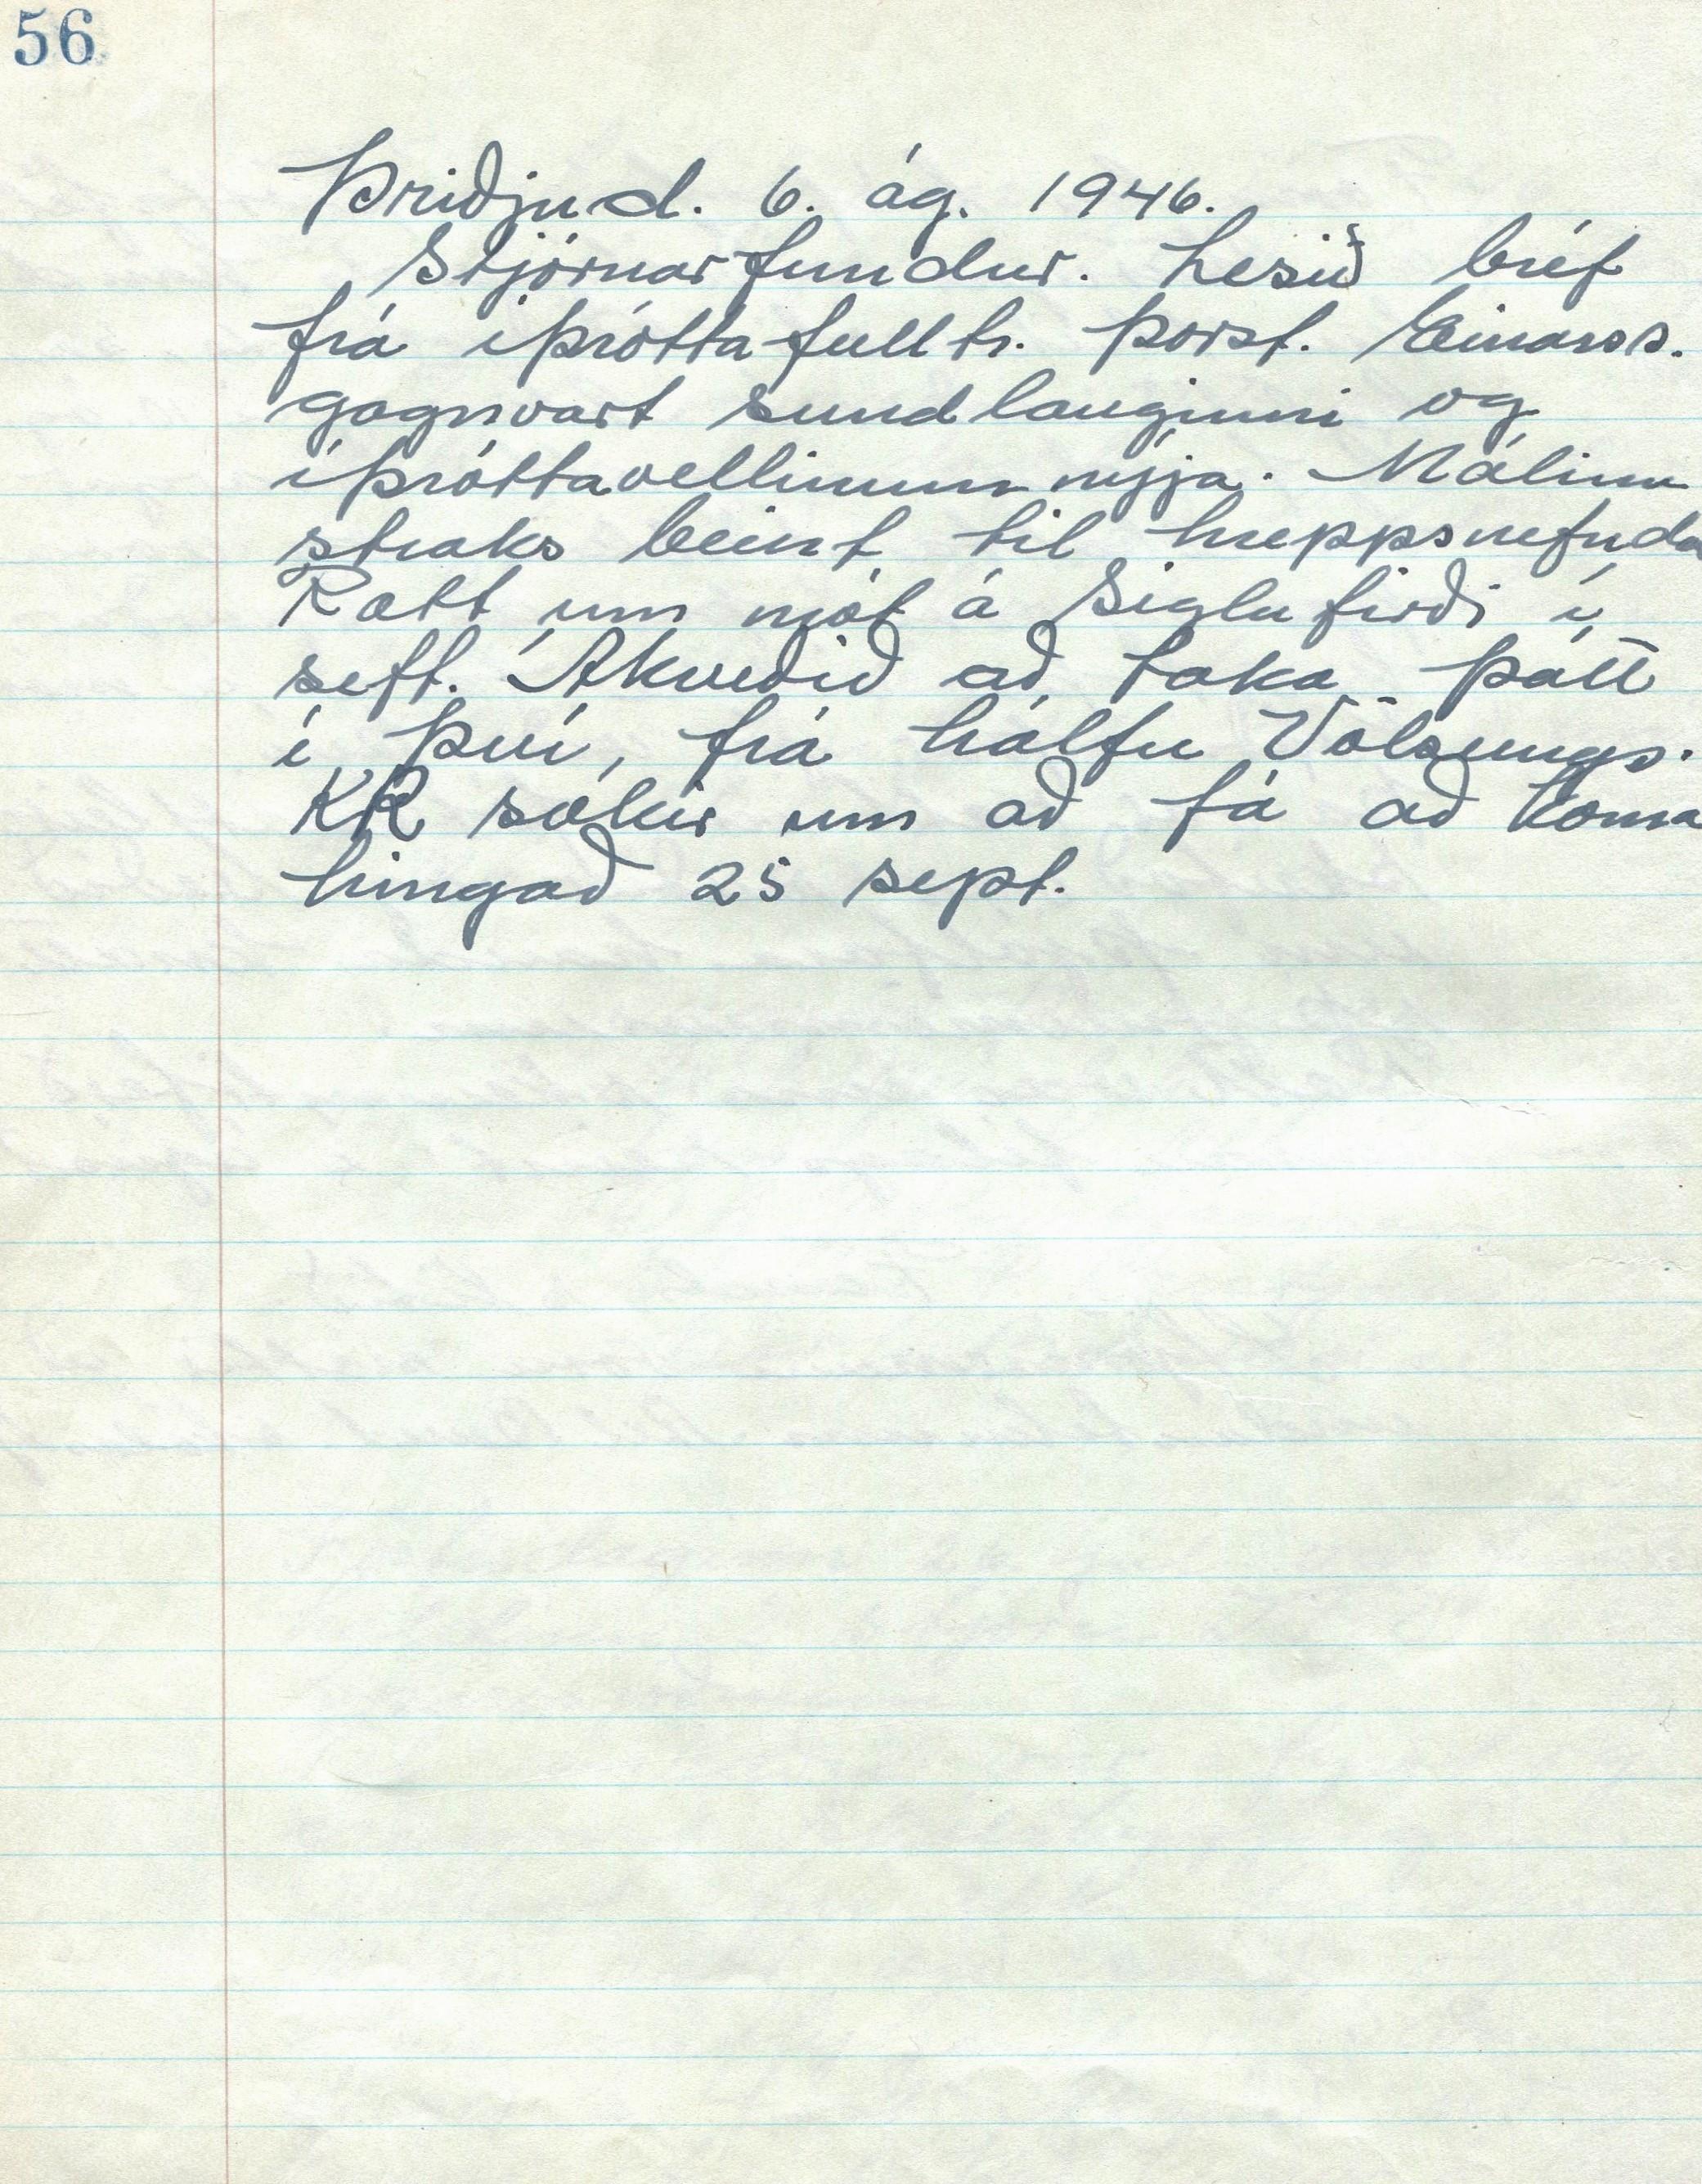 56
Þriðjud. 6. ág. 1946.
Stjórnarfundur. Lesið bréf
frá íþróttafulltr. Þorst. Einarss.
gagnvart sundlauginni og
íþróttavellinum nýja. Málinu
straks beint til hreppsnefnda
Rætt um mót á Siglufirði í
seft. Ákveðið að taka þátt
í því, frá hálfu Völsungs.
KR sækir um að fá að koma
hingað 25 sept.